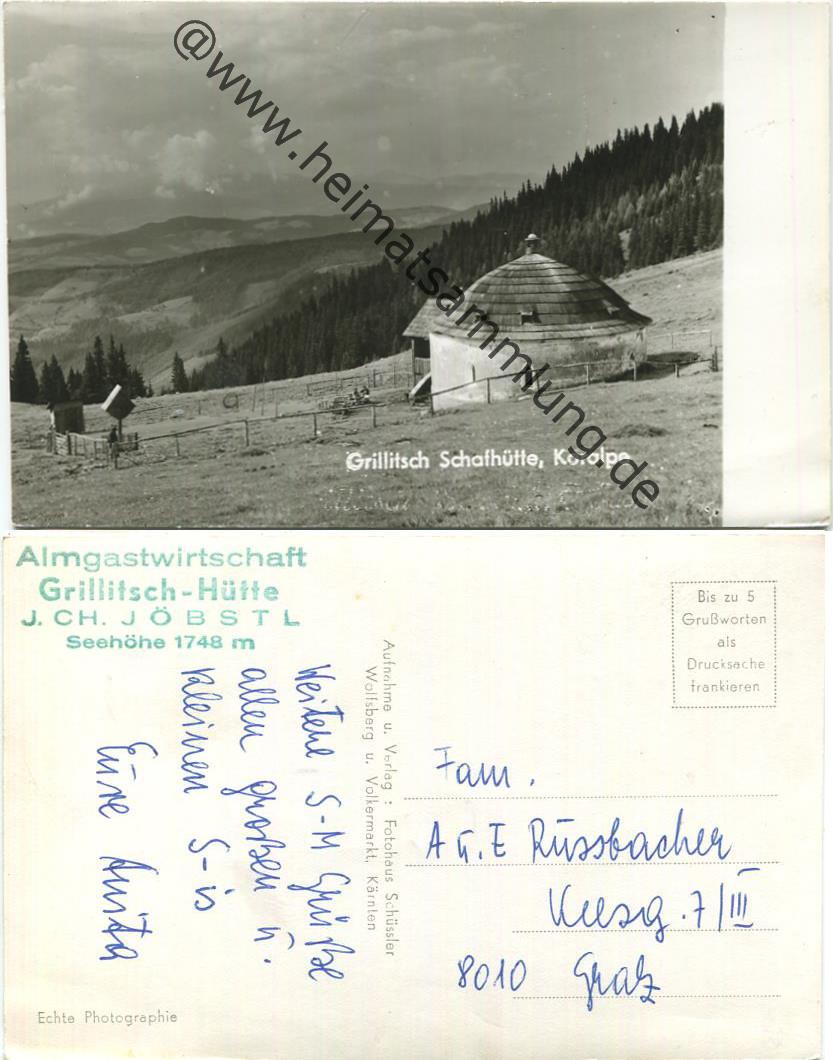 @www.heimatsammlung.de
Grillitsch Schafhütte, Koralpe
Almgastwirtschaft
Grillitsch-Hütte
J. CH. JÖBSTL
Seehöhe 1748 m
Bis zu 5
Grußworten
als
Drucksache
frankieren
Weitere S-M Grüße
allen großen u.
kleinen S-is
Eure Anita
Aufnahme u. Verlag: Fotohaus Schüssler
Wolfsberg u. Völkermarkt, Kärnten
Fam.
A u. E Rüssbacher
7/III
8010 Graz
Echte Photographie